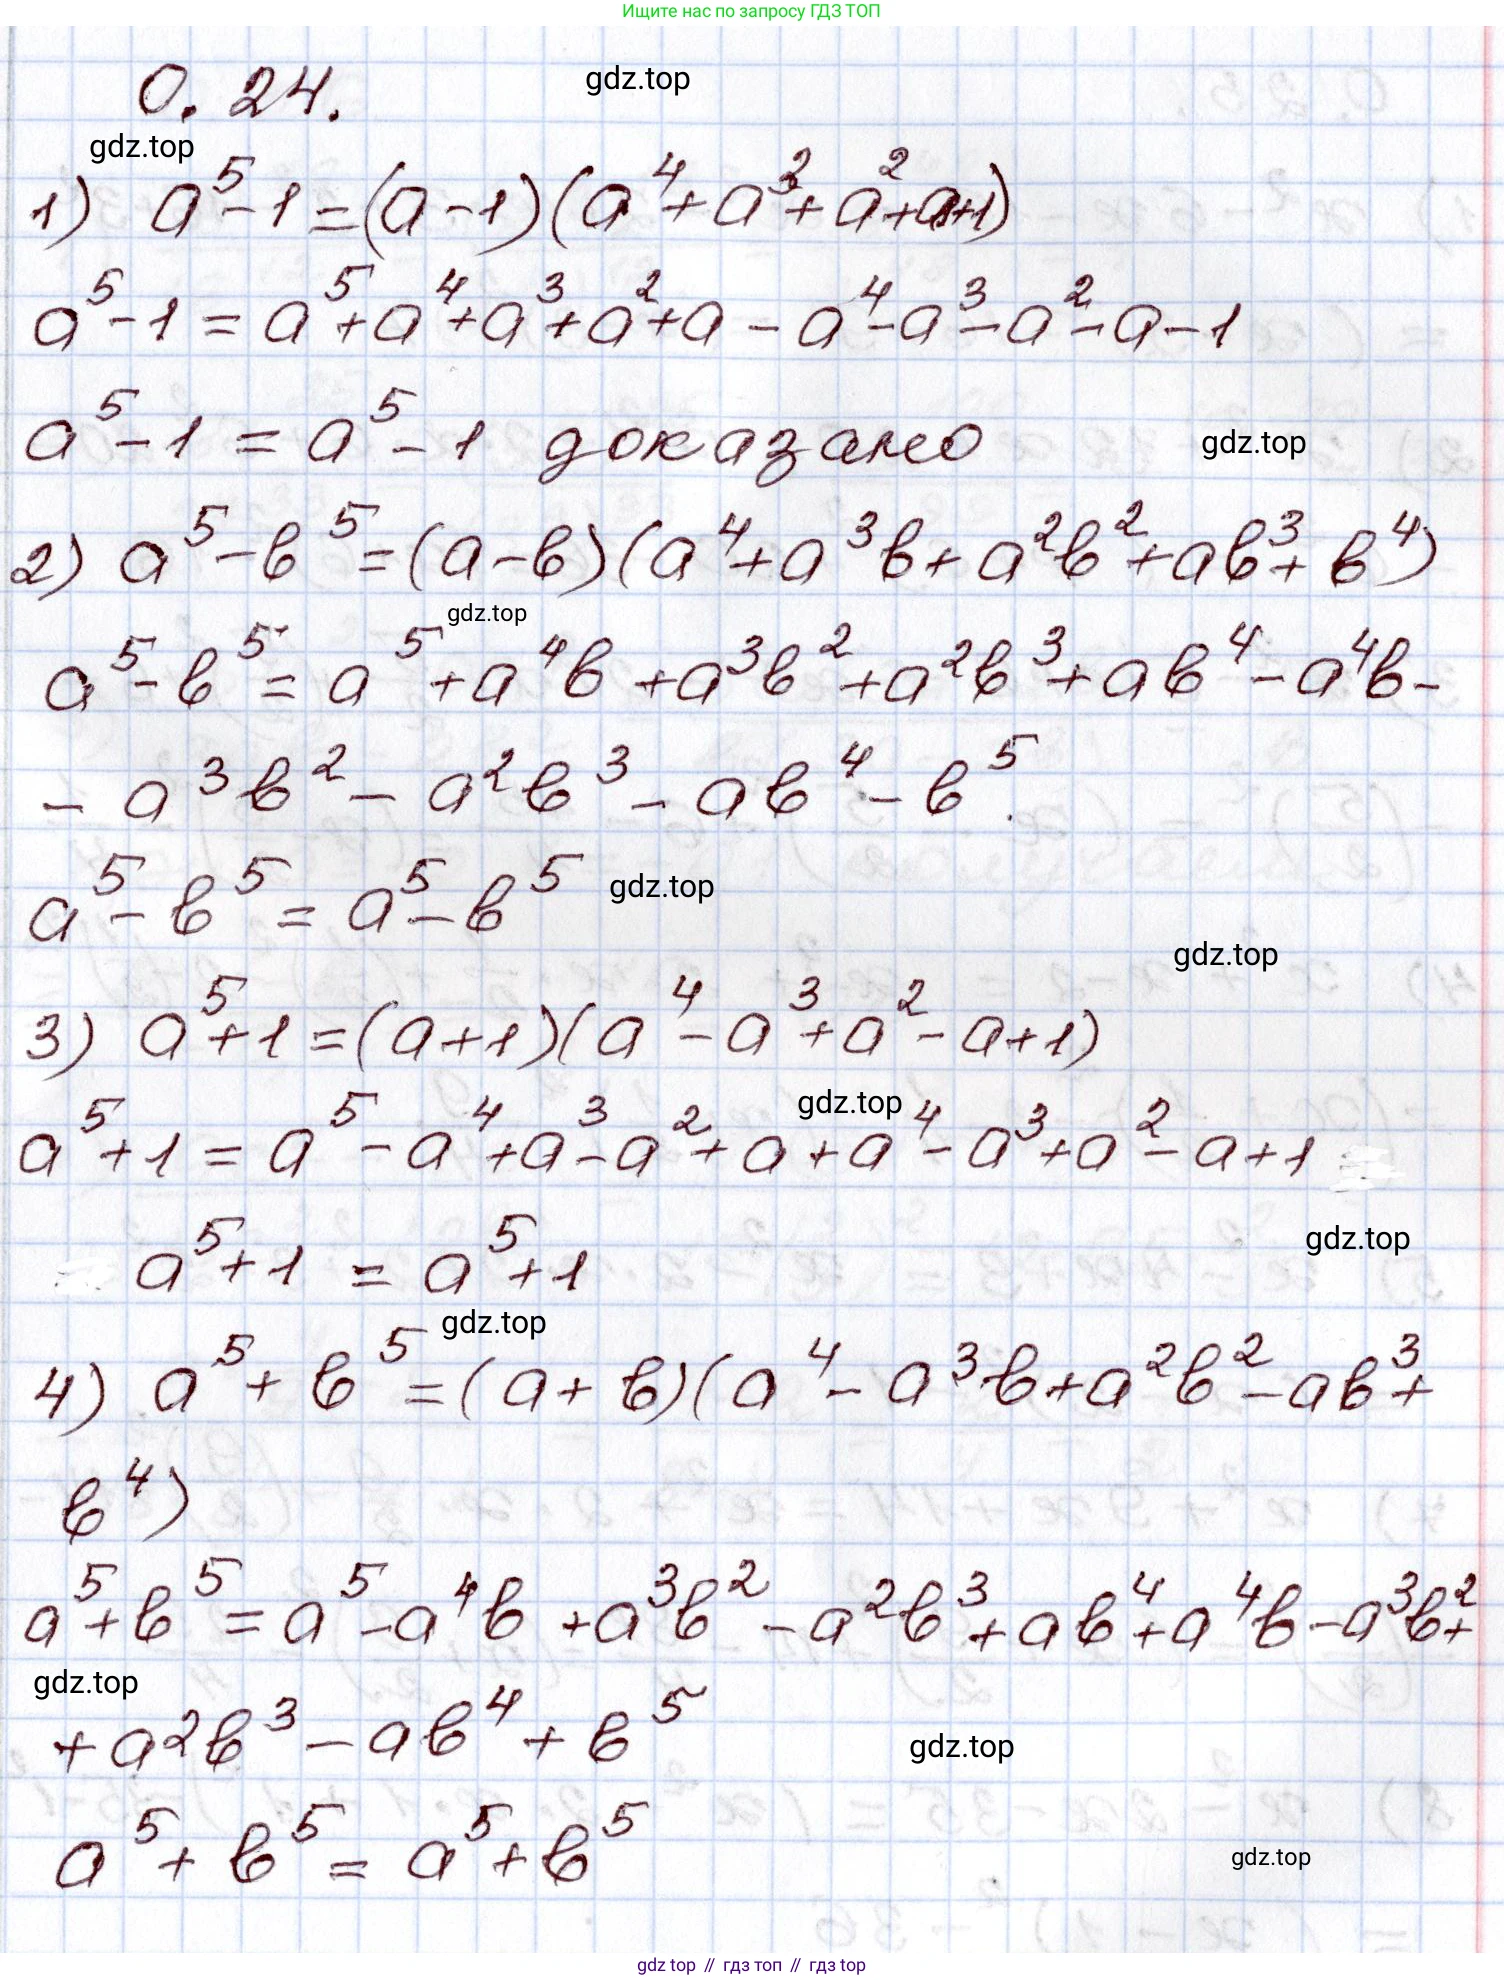 Ищите нас по запросу ГДЗ ТОП
0.24.
gdz.top
gdz.top
1) a⁵-1=(a-1)(a⁴+a³+a²+a+1)
a⁵-1=a⁵+a⁴+a³+a²+a-a⁴-a³-a²-a-1
a⁵-1=a⁵-1 доказано
gdz.top
2) a⁵-в⁵=(a-в)(a⁴+a³в+a²в²+aв³+в⁴)
gdz.top
a⁵-в⁵=a⁵+a⁴в+a³в²+a²в³+aв⁴-a⁴в-
-a³в²-a²в³-aв⁴-в⁵.
a⁵-в⁵=a⁵-в⁵
gdz.top
gdz.top
3) a⁵+1=(a+1)(a⁴-a³+a²-a+1)
gdz.top
a⁵+1=a⁵-a⁴+a³-a²+a+a⁴-a³+a²-a+1
gdz.top
a⁵+1=a⁵+1
gdz.top
4) a⁵+в⁵=(a+в)(a⁴-a³в+a²в²-aв³+
в⁴)
a⁵+в⁵=a⁵-a⁴в+a³в²-a²в³+aв⁴+a⁴в-a³в²+
gdz.top
+a²в³-aв⁴+в⁵
gdz.top
a⁵+в⁵=a⁵+в⁵
gdz.top
gdz top // гдз топ // гдз top